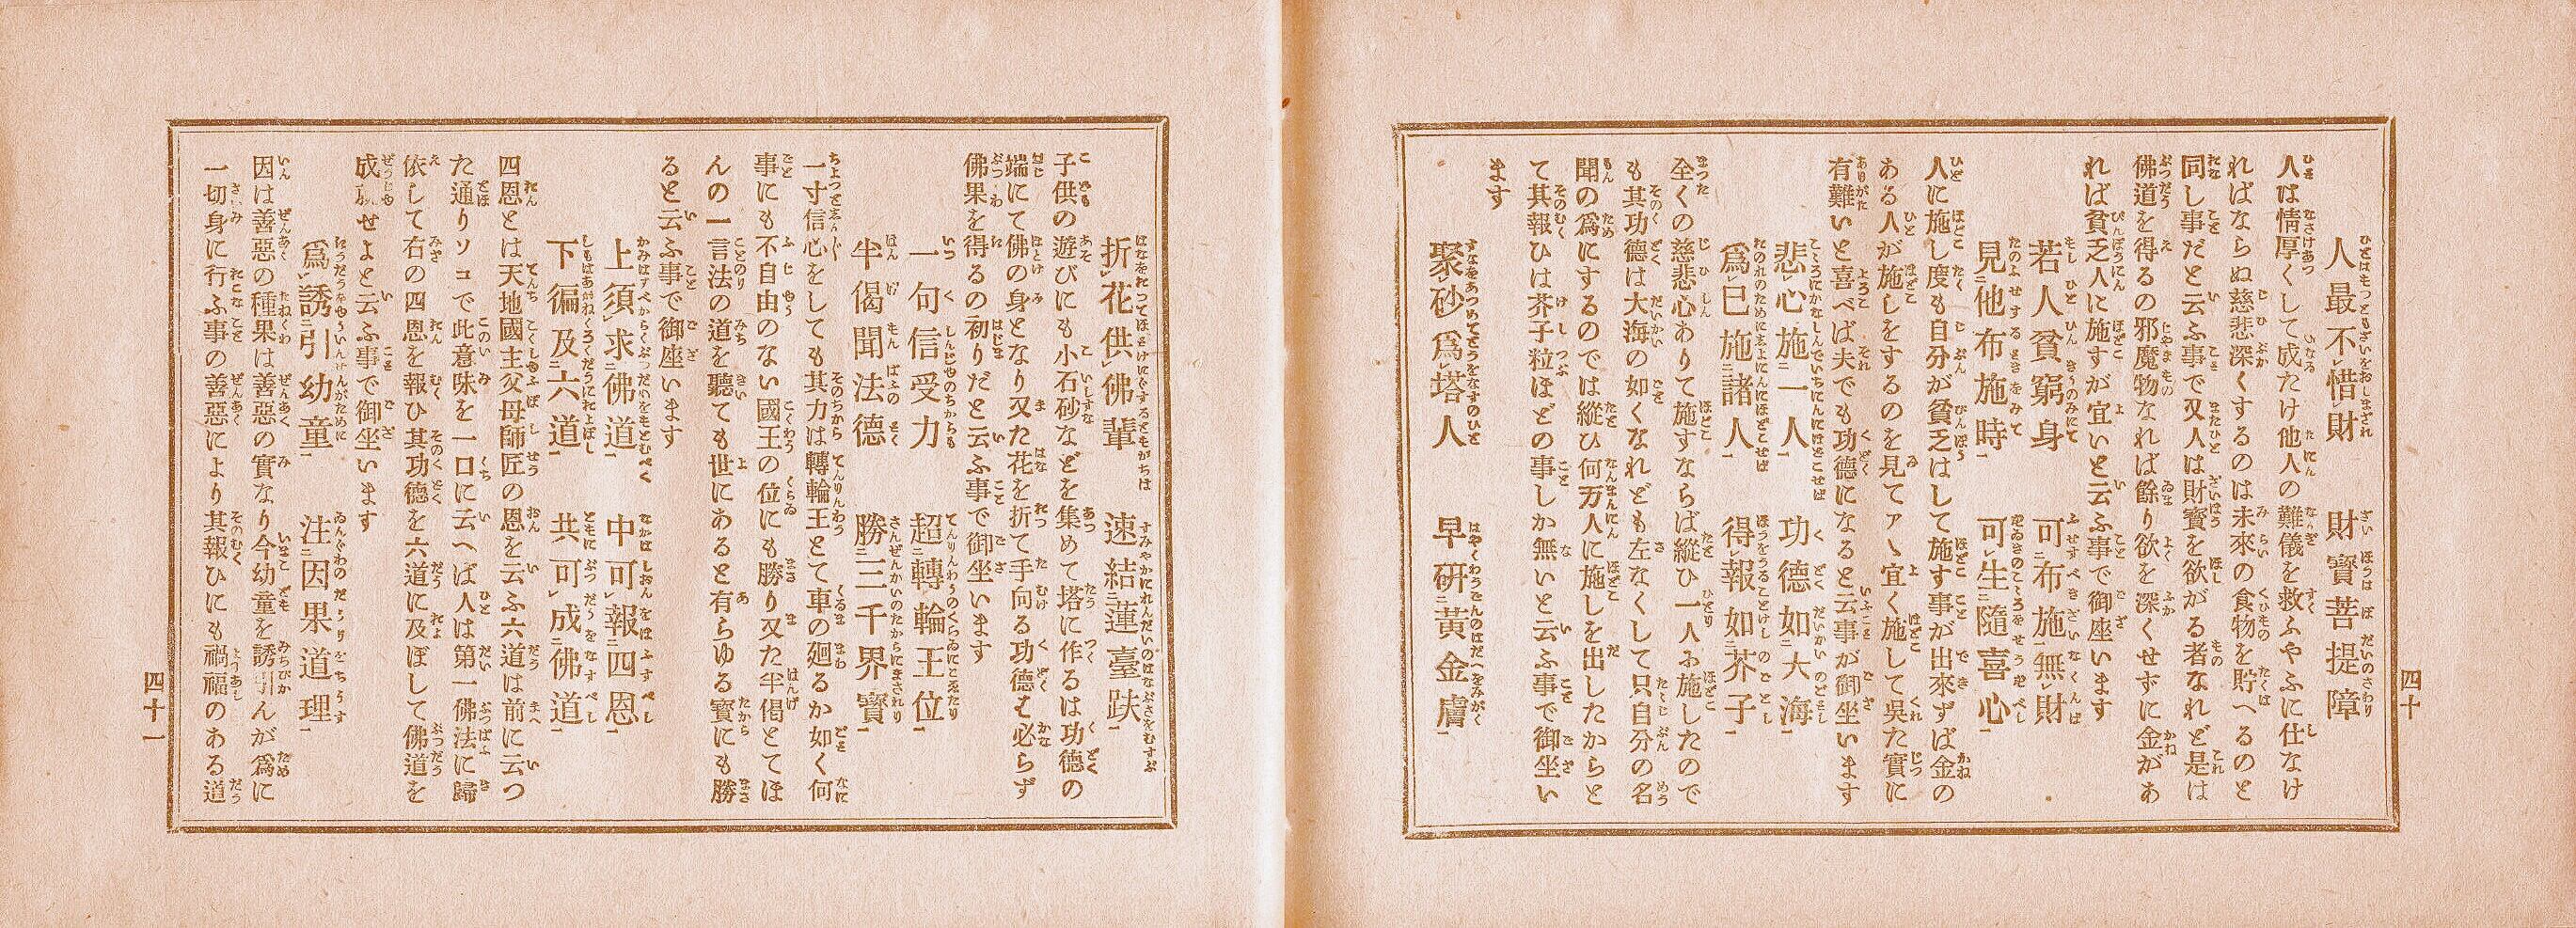 人最不㆑惜財　財寶菩提障
人は情厚くして成たけ他人の難儀を救ふやふに仕なけ
ればならぬ慈悲深くするのは未來の食物を貯へるのと
同し事だと云ふ事で又人は財寶を欲がる者なれど是は
佛道を得るの邪魔物なれば餘り欲を深くせずに金があ
れば貧乏人に施すが宜いと云ふ事で御座います
若人貧窮身　可㆓布施㆒無㆑財
見㆓他布施時㆒　可㆑生㆓隨喜心㆒
人に施し度も自分が貧乏はして施す事が出來ずば金の
ある人が施しをするのを見てアヽ宜く施して吳た實に
有難いと喜べば夫でも功德になると云事が御坐います
悲㆑心施㆓一人㆒　功德如㆓大海㆒
爲㆑已施㆓諸人㆒　得㆑報如㆓芥子㆒
全くの慈悲心ありて施すならば縱ひ一人お施したので
も其功德は大海の如くなれども左なくして只自分の名
聞の爲にするのでは縱ひ何万人に施しを出したからと
て其報ひは芥子粒ほどの事しか無いと云ふ事で御坐い
ます
聚㆑砂爲㆑塔人　早硏㆓黃金膚㆒
四十
折㆑花供㆑佛輩　速結㆓蓮臺趺㆒
子供の遊びにも小石砂などを集めて塔に作るは功德の
端にて佛の身となり又た花を折て手向る功德も必らず
佛果を得るの初りだと云ふ事で御坐います
一句信受力　超㆓轉輪王位㆒
半偈聞法德　勝㆓三千界寶㆒
一寸信心をしても其力は轉輪王とて車の廻るか如く何
事にも不自由のない國王の位にも勝り又た半偈とてほ
んの一言法の道を聽ても世にあると有らゆる寶にも勝
ると云ふ事で御座います
上須㆑求㆓佛道㆒　中可㆑報㆓四恩㆒
下徧及㆓六道㆒　共可㆑成㆓佛道㆒
四恩とは天地國主父母師匠の恩を云ふ六道は前に云つ
た通りソコで此意味を一口に云へば人は第一佛法に歸
依して右の四恩を報ひ其功德を六道に及ぼして佛道を
成就せよと云ふ事で御坐います
爲㆑誘㆓引幼童㆒　注㆓因果道理㆒
因は善惡の種果は善惡の實なり今幼童を誘引んが爲に
一切身に行ふ事の善惡により其報ひにも禍福のある道
四十一